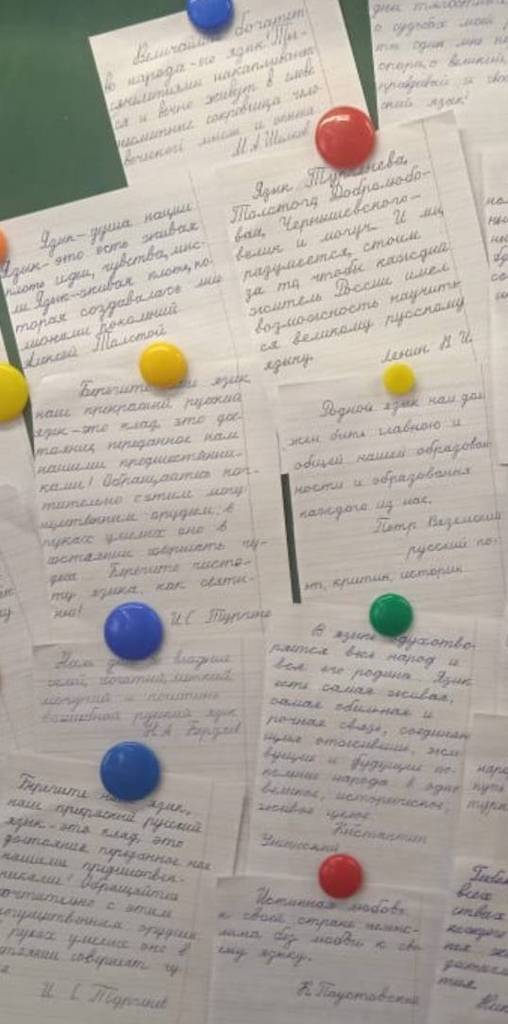 Величайшее богатст
во народа - его язык. Ты-
сячелетиями накапливают
ся и вечно живут в слове
несметные сокровища чело
веческой мысли и опыта
М. А. Шолохов
о судьбах моей
ты один мне
опора, о великий,
правдивый и сво
ский язык!
Язык - душа нации.
Язык - это есть живая
плоть идеи, чувства, мыс-
ли. Язык - живая плоть, ко-
торая создавалась мил
лионами поколений
Алексей Толстой
Язык Тургенева,
Толстого, Добролюбо-
ва, Чернышевского -
велик и могуч. И мы,
разумеется, стоим
за то, чтобы каждый
житель России имел
возможность научить
ся великому русскому
языку.
Ленин В. И.
Берегите язык
наш прекрасный русский
язык - это клад, это дос-
тояние, переданное нам
нашими предшественни-
ками! Обращайтесь поч-
тительно с этим могу
щественным орудием; в
руках умелых оно в
состоянии совершать чу-
деса. Берегите чисто-
ту языка, как святы-
ню!
И. С. Тургенев
Родной язык нам дол
жен быть главною и
общей нашей образован
ности и образования
каждого из нас.
Петр Вяземский
русский по-
эт, критик, историк
Нам дан во владение
самый богатый, меткий,
могучий и поистине
волшебный русский язык
В языке одухотво-
ряется весь народ и
вся его родина. Язык
есть самая живая,
самая обильная и
прочная связь, соединяю
щая отжившие, жи
вущие и будущие по-
коления народа в одно
великое, историческое,
живое целое.
Константин
Ушинский
Берегите наш язык,
наш прекрасный русский
язык - это клад, это
достояние переданное нам
нашими предшествен-
никами! Обращайтесь
почтительно с этим
могущественным орудием
руках умелых оно в
состоянии совершать чу
И. С. Тургенев
Истинная любовь
к своей стране немыс-
лима без любви к сво
ему языку.
К. Паустовский
всех
ствах
каждого